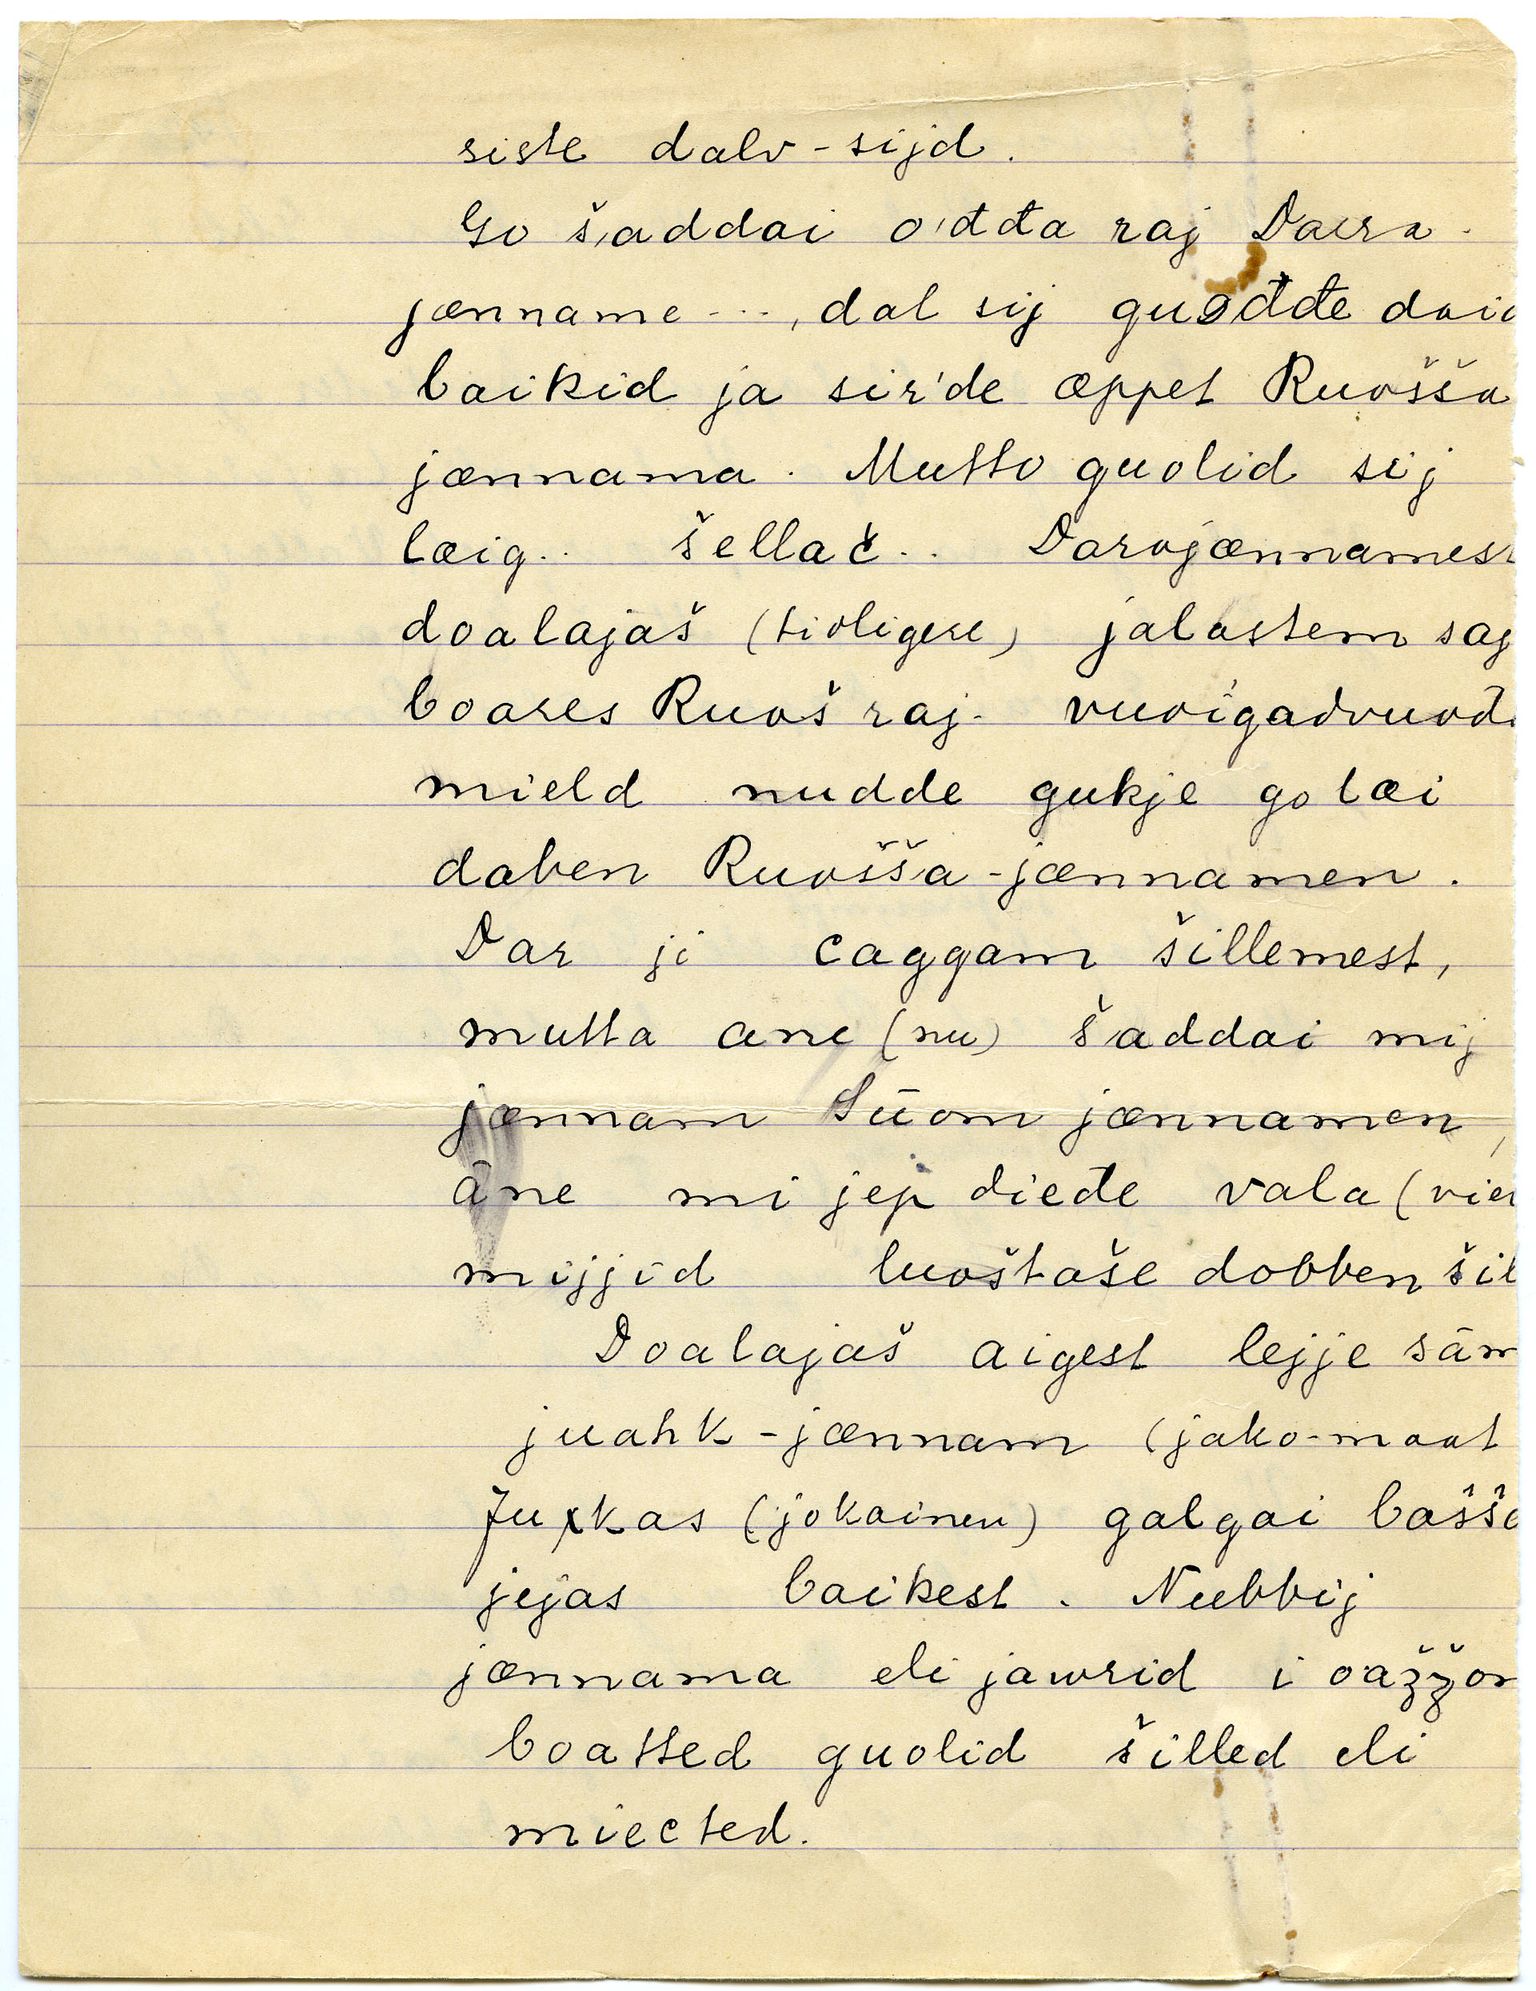 siste dalv-sijd.
Go šaddai ođđa raj Daera-
jœnname ..., dal sij guođđe
baikid ja sir'de œppet Ruošša
jœnnama. Mutto guolid sij
lœig.. šellač.. Darojœnnamest
doalajaš (tioligese) jalastem saj
boares Ruoš raj. vuoigadvuođ
mield nudde gukje go lœi
daben Ruošša-jœnnamen.
Dar ji caggam šillemest,
mutta ane (nu) šaddai mij
jœnnam Suom jœnnamen,
âne mi jep dieđe vala (vie
mijjid luoštaše dobben šil
Doalajaš aigest lejje säm
juahk-jœnnam (jako-maat
Juxkas (jokainen) galgai bašša
jejas baikest. Nubbij
jœnnama eli jawrid i oaǯǯom
boatted guolid šilled eli
miected.